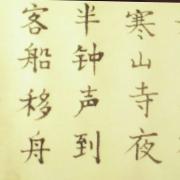 寒山寺夜
半钟声到
客船移舟